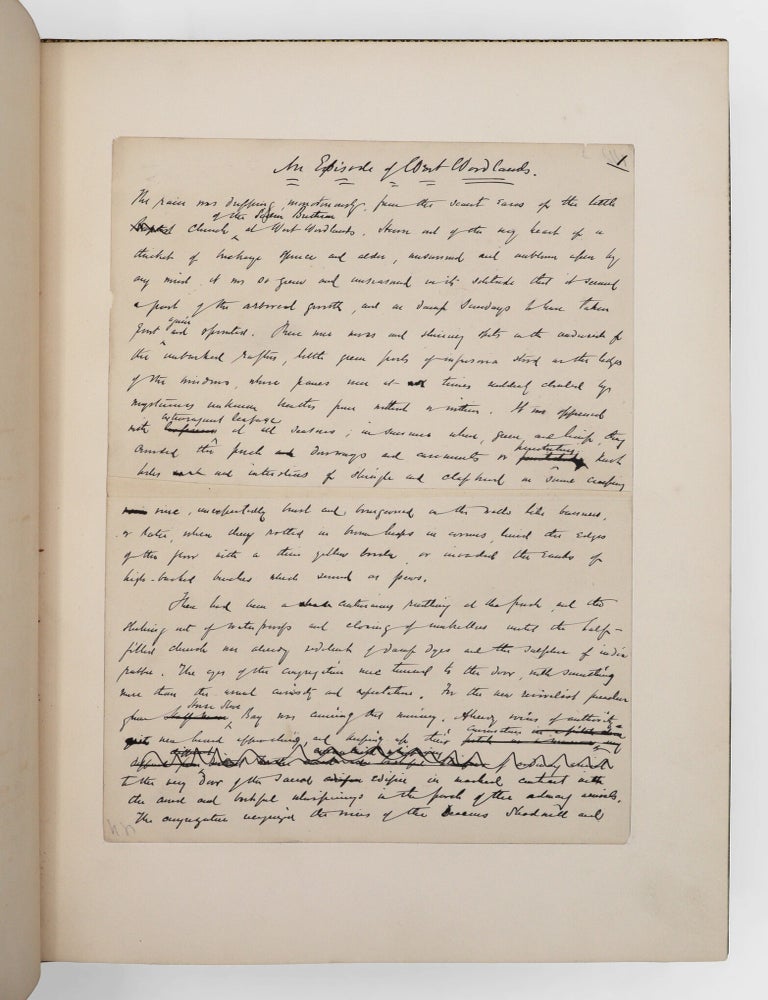 1
An Episode of West Woodlands.
The rain was dripping monotonously from the scant eaves of the little
of the Sidon Brethren
church at West Woodlands. Hewn out of the very heart of a
thicket of buckeye spruce and alder, unsunned and unblown upon by
any wind, it was so green and unseasoned in its solitude that it seemed
a part of the arboreal growth, and on damp Sundays to have taken
again
root and sprouted. There were moss and shining spots on the underside of
the unbarked rafters, little green pools of infusoria stood on the ledges
of the windows, whose panes were at times suddenly clouded by
mysterious unknown breaths from without or within. It was oppressed
extravagant leafage
with at all seasons; in summer when, green and limp, they
crowded the porch doorways and casements or penetrating knot
holes and interstices of shingle and clapboard on some creeping
vine, unexpectedly burst and bourgeoned on the walls like banners,
or later, when they rotted in brown heaps in corners, lined the edges
of the floor with a thin yellow border, or invaded the ranks of
high-backed benches which served as pews.
There had been a continuous rustling at the porch and the
shaking out of waterproofs and closing of umbrellas until the half-
filled church was already redolent of damp dyes and the sulphur of india
rubber. The eyes of the congregation were turned to the door, with something
more than the usual curiosity and expectation. For the new revivalist preacher
from Horse Shoe Bay was coming that morning. Already voices of authority
were heard approaching, and keeping up their
conversation
to the very door of the sacred edifice in marked contrast with
the awed and bashful whisperings in the porch of the ordinary arrivals.
The congregation recognized the voices of the Deacons Shadwell and